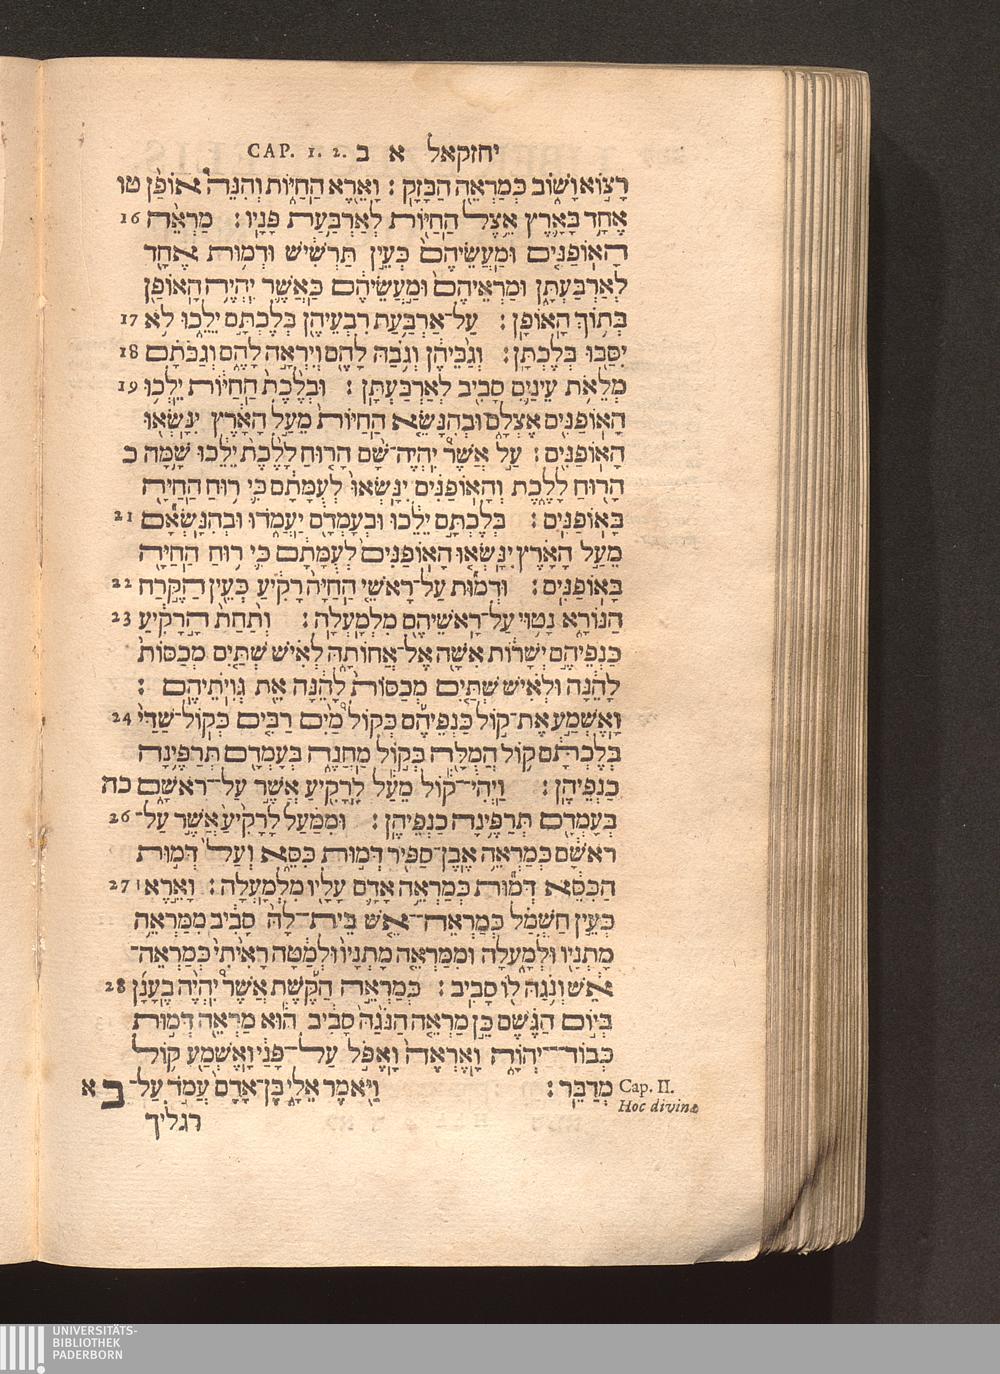 יחזקאל א ב CAP. 1. 2.
רָצ֣וֹא וָשׁ֑וֹב כְּמַרְאֵ֖ה הַבָּזָֽק : וָאֵ֖רֶא הַחַיּ֑וֹת וְהִנֵּה֩ אוֹפַ֨ן טו
אֶחָ֥ד בָּאָ֛רֶץ אֵ֥צֶל הַחַיּ֖וֹת לְאַרְבַּ֥עַת פָּנָֽיו : מַרְאֵ֨ה 16
הָאוֹפַנִּ֤ים וּמַעֲשֵׂיהֶם֙ כְּעֵ֣ין תַּרְשִׁ֔ישׁ וּדְמ֥וּת אֶחָ֖ד
לְאַרְבַּעְתָּ֑ן וּמַרְאֵיהֶם֙ וּמַ֣עֲשֵׂיהֶ֔ם כַּאֲשֶׁ֛ר יִהְיֶ֥ה הָאוֹפַ֖ן
בְּת֥וֹךְ הָאוֹפָֽן : עַל־אַרְבַּ֥עַת רִבְעֵיהֶ֖ן בְּלֶכְתָּ֣ם יֵלֵ֑כוּ לֹ֥א 17
יִסַּ֖בּוּ בְּלֶכְתָּֽן : וְגַ֨בֵּיהֶ֔ן וְגֹ֥בַהּ לָהֶ֖ם וְיִרְאָ֣ה לָהֶ֑ם וְגַבֹּתָ֗ם 18
מְלֵאֹ֥ת עֵינַ֛יִם סָבִ֖יב לְאַרְבַּעְתָּֽן : וּבְלֶ֙כֶת֙ הַחַיּ֔וֹת יֵלְכ֥וּ 19
הָאוֹפַנִּ֖ים אֶצְלָ֑ם וּבְהִנָּשֵׂ֤א הַחַיּוֹת֙ מֵעַ֣ל הָאָ֔רֶץ יִנָּשְׂא֖וּ
הָאוֹפַנִּֽים : עַ֣ל אֲשֶׁר֩ יִֽהְיֶה־שָּׁ֨ם הָר֤וּחַ לָלֶ֙כֶת֙ יֵלֵ֔כוּ שָׁ֥מָּה כ
הָר֖וּחַ לָלֶ֑כֶת וְהָאוֹפַנִּ֗ים יִנָּשְׂאוּ֙ לְעֻמָּתָ֔ם כִּ֛י ר֥וּחַ הַחַיָּ֖ה
בָּאוֹפַנִּֽים : בְּלֶכְתָּ֣ם יֵלֵ֔כוּ וּבְעָמְדָ֖ם יַעֲמֹ֑דוּ וּֽבְהִנָּשְׂאָ֞ם 21
מֵעַ֣ל הָאָ֗רֶץ יִנָּשְׂא֤וּ הָאֽוֹפַנִּים֙ לְעֻמָּתָ֔ם כִּ֛י ר֥וּחַ הַחַיָּ֖ה
בָּאוֹפַנִּֽים : וּדְמ֞וּת עַל־רָאשֵׁ֤י הַחַיָּה֙ רָקִ֔יעַ כְּעֵ֖ין הַקֶּ֣רַח 22
הַנּוֹרָ֑א נָט֥וּי עַל־רָאשֵׁיהֶ֖ם מִלְמָֽעְלָה : וְתַ֙חַת֙ הָרָקִ֔יעַ 23
כַּנְפֵיהֶ֣ם יְשָׁר֔וֹת אִשָּׁ֖ה אֶל־אֲחוֹתָ֑הּ לְאִ֗ישׁ שְׁתַּ֤יִם מְכַסּוֹת֙
לָהֵ֔נָּה וּלְאִ֗ישׁ שְׁתַּ֤יִם מְכַסּוֹת֙ לָהֵ֔נָּה אֵ֖ת גְּוִיֹּתֵיהֶֽם :
וָאֶשְׁמַ֣ע אֶת־ק֣וֹל כַּנְפֵיהֶ֡ם כְּקוֹל֩ מַ֨יִם רַבִּ֤ים כְּקוֹל־שַׁדַּי֙ 24
בְּלֶכְתָּ֔ם ק֥וֹל הֲמֻלָּ֖ה כְּק֣וֹל מַחֲנֶ֑ה בְּעָמְדָ֖ם תְּרַפֶּ֥ינָה
כַנְפֵיהֶֽן : וַיְהִי־ק֕וֹל מֵעַ֕ל לָרָקִ֖יעַ אֲשֶׁ֣ר עַל־רֹאשָׁ֑ם כה
בְּעָמְדָ֖ם תְּרַפֶּ֥ינָה כַנְפֵיהֶֽן : וּמִמַּ֗עַל לָרָקִ֙יעַ֙ אֲשֶׁ֣ר עַל־ 26
רֹאשָׁ֔ם כְּמַרְאֵ֥ה אֶֽבֶן־סַפִּ֖יר דְּמ֣וּת כִּסֵּ֑א וְעַל֙ דְּמ֣וּת
הַכִּסֵּ֔א דְּמ֞וּת כְּמַרְאֵ֥ה אָדָ֛ם עָלָ֖יו מִלְמָֽעְלָה : וָאֵ֣רֶא ׀ 27
כְּעֵ֣ין חַשְׁמַ֗ל כְּמַרְאֵה־אֵ֤שׁ בֵּֽית־לָהּ֙ סָבִ֔יב מִמַּרְאֵ֥ה
מָתְנָ֖יו וּלְמָ֑עְלָה וּמִמַּרְאֵ֤ה מָתְנָיו֙ וּלְמַ֔טָּה רָאִ֙יתִי֙ כְּמַרְאֵה־
אֵ֔שׁ וְנֹ֥גַֽהּ ל֖וֹ סָבִֽיב : כְּמַרְאֵ֣ה הַקֶּ֡שֶׁת אֲשֶׁר֩ יִֽהְיֶ֨ה בֶעָנָ֜ן 28
בְּי֣וֹם הַגֶּ֗שֶׁם כֵּ֣ן מַרְאֵ֤ה הַנֹּ֙גַהּ֙ סָבִ֔יב ה֕וּא מַרְאֵ֖ה דְּמ֣וּת
כְּבוֹד־יְהוָ֑ה וָֽאֶרְאֶה֙ וָאֶפֹּ֣ל עַל־פָּנַ֔י וָאֶשְׁמַ֖ע ק֥וֹל
מְדַבֵּֽר : וַיֹּ֖אמֶר אֵלָ֑י בֶּן־אָדָם֙ עֲמֹ֣ד עַל־ ב א
Cap. II.
Hoc divinæ
רגליך
UNIVERSITÄTS-
BIBLIOTHEK
PADERBORN